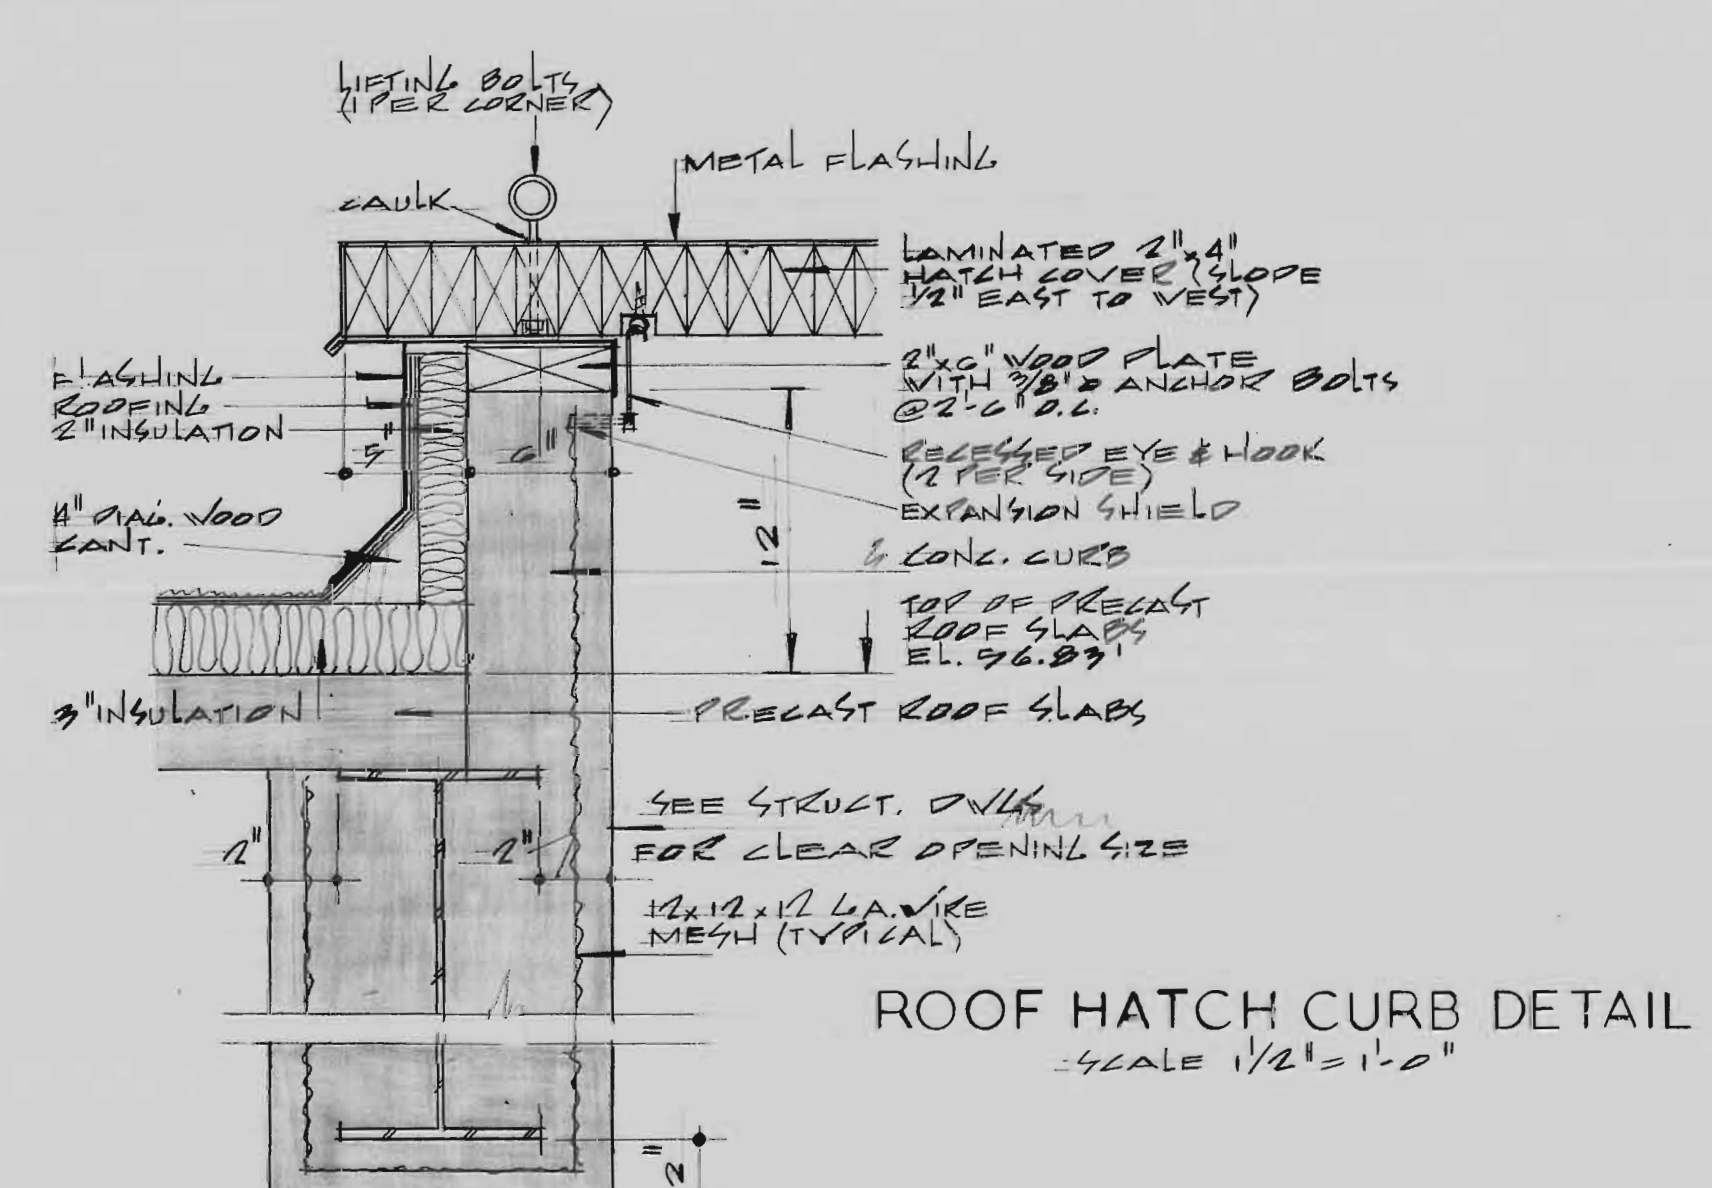 LIFTING BOLTS
(1 PER CORNER)
METAL FLASHING
CAULK
LAMINATED 2"x4"
HATCH COVER (SLOPE
1/2" EAST TO WEST)
2"x6" WOOD PLATE
WITH 3/8"ø ANCHOR BOLTS
@2'-6" O.C.
FLASHING
ROOFING
2" INSULATION
5"
6"
RECESSED EYE & HOOK
(2 PER SIDE)
EXPANSION SHIELD
4" DIAG. WOOD
CANT.
12"
CONC. CURB
TOP OF PRECAST
ROOF SLABS
EL. 56.83'
3" INSULATION
PRECAST ROOF SLABS
SEE STRUCT. DWGS
FOR CLEAR OPENING SIZE
2"
2"
12x12x12 GA. WIRE
MESH (TYPICAL)
ROOF HATCH CURB DETAIL
SCALE 1 1/2" = 1'-0"
2"